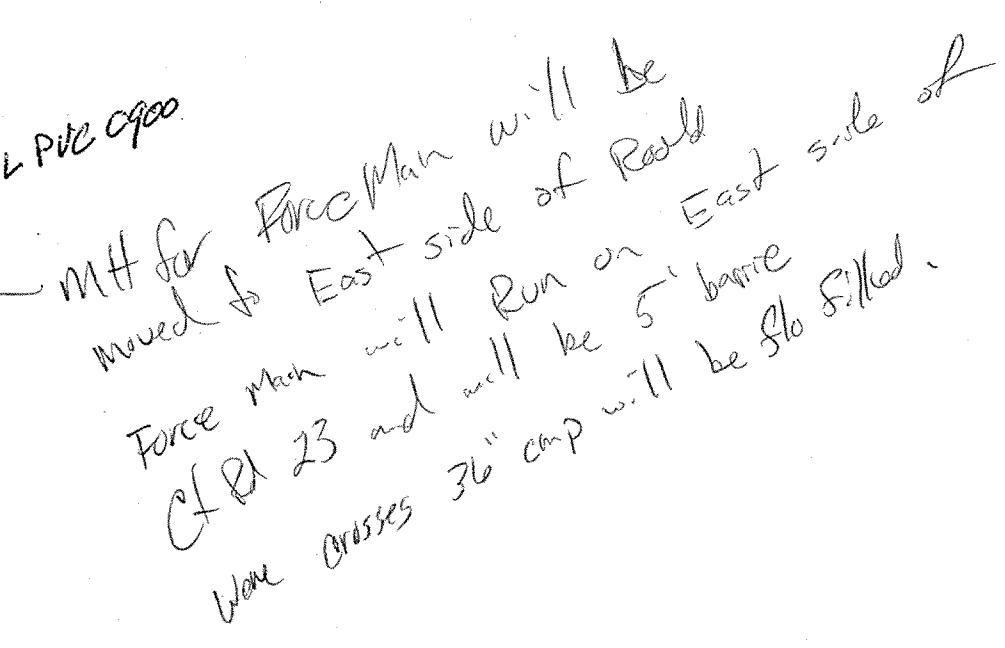 L PVC C900
- MH for Force Man will be
moved to East side of Roald
Force Main will Run on East side of
Ct Rd 23 and will be 5' barrie
Wore crosses 36" cmp will be flo filled.